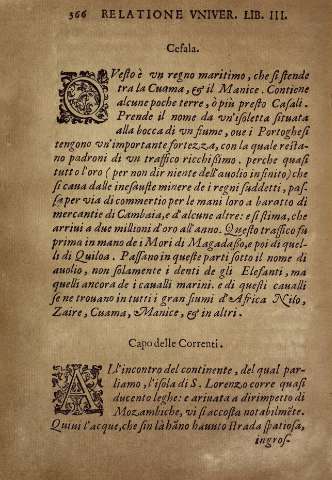 366 RELATIONE VNIVER. LIB. III.
Cefala.
QVesto è vn regno maritimo, che si stende
tra la Cuama, & il Manice. Contiene
alcune poche terre, ò più presto Casali.
Prende il nome da vn'isoletta situata
alla bocca di vn fiume, oue i Portoghesi
tengono vn'importante fortezza, con la quale resta-
no padroni di vn traffico ricchissimo. perche quasi
tutto l'oro (per non dir niente dell'auolio infinito) che
si caua dalle inesauste minere de i regni suddetti, pas-
sa per via di commertio per le mani loro a baratto di
mercantie di Cambaia, e d'alcune altre: e si stima, che
arriui a due millioni d'oro all'anno. Questo traffico fu
prima in mano de i Mori di Magadasso, e poi di quel-
li di Quiloa. Passano in queste parti sotto il nome di
auolio, non solamente i denti de gli Elefanti, ma
quelli ancora de i caualli marini. e di questi caualli
se ne trouano in tutti i gran fiumi d'Africa Nilo,
Zaire, Cuama, Manice, & in altri.
Capo delle Correnti.
ALl'incontro del continente, del qual par-
liamo, l'isola di S. Lorenzo corre quasi
ducento leghe: e ariuata a dirimpetto di
Mozambiche, vi si accosta notabilmēte.
Quiui l'acque, che sin là hāno hauuto strada spatiosa,
ingros-